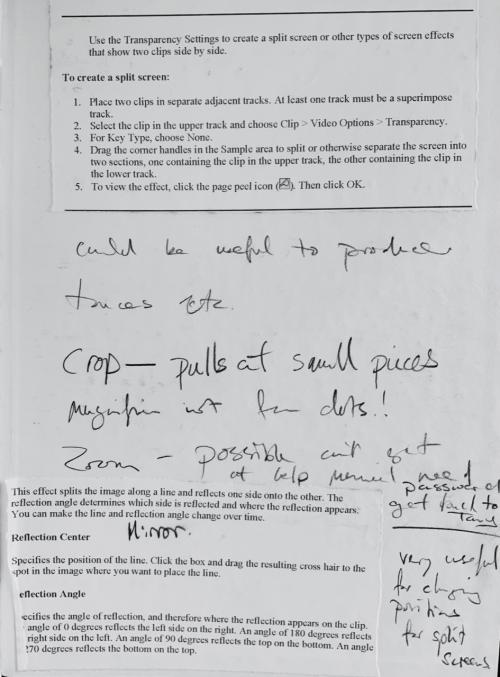 Use the Transparency Settings to create a split screen or other types of screen effects
that show two clips side by side.
To create a split screen:
1. Place two clips in separate adjacent tracks. At least one track must be a superimpose
track.
2. Select the clip in the upper track and choose Clip > Video Options > Transparency.
3. For Key Type, choose None.
4. Drag the corner handles in the Sample area to split or otherwise separate the screen into
two sections, one containing the clip in the upper track, the other containing the clip in
the lower track.
5. To view the effect, click the page peel icon ( ). Then click OK.
could be useful to produce
etc.
Crop — pulls at small pieces
dots!
Zoom – possible can't get
at help manual need
password
get back to
This effect splits the image along a line and reflects one side onto the other. The
reflection angle determines which side is reflected and where the reflection appears.
You can make the line and reflection angle change over time.
Mirror.
Reflection Center
Specifies the position of the line. Click the box and drag the resulting cross hair to the
spot in the image where you want to place the line.
eflection Angle
ecifies the angle of reflection, and therefore where the reflection appears on the clip.
angle of 0 degrees reflects the left side on the right. An angle of 180 degrees reflects
right side on the left. An angle of 90 degrees reflects the top on the bottom. An angle
270 degrees reflects the bottom on the top.
very useful
for
positions
for split
screens